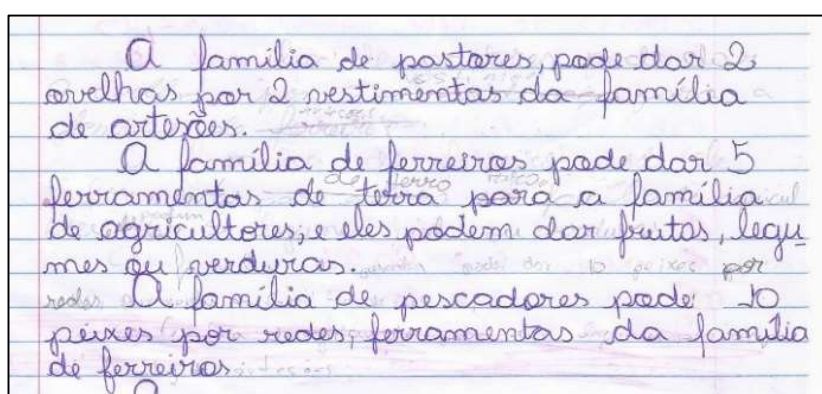 A família de pastores, pode dar 2
ovelhas por 2 vestimentas da família
de artesões.
A família de ferreiros pode dar 5
ferramentas de terra para a família
de agricultores, e eles podem dar frutas, legu
mes ou verduras.
A família de pescadores pode 10
peixes por redes, ferramentas da família
de ferreiros